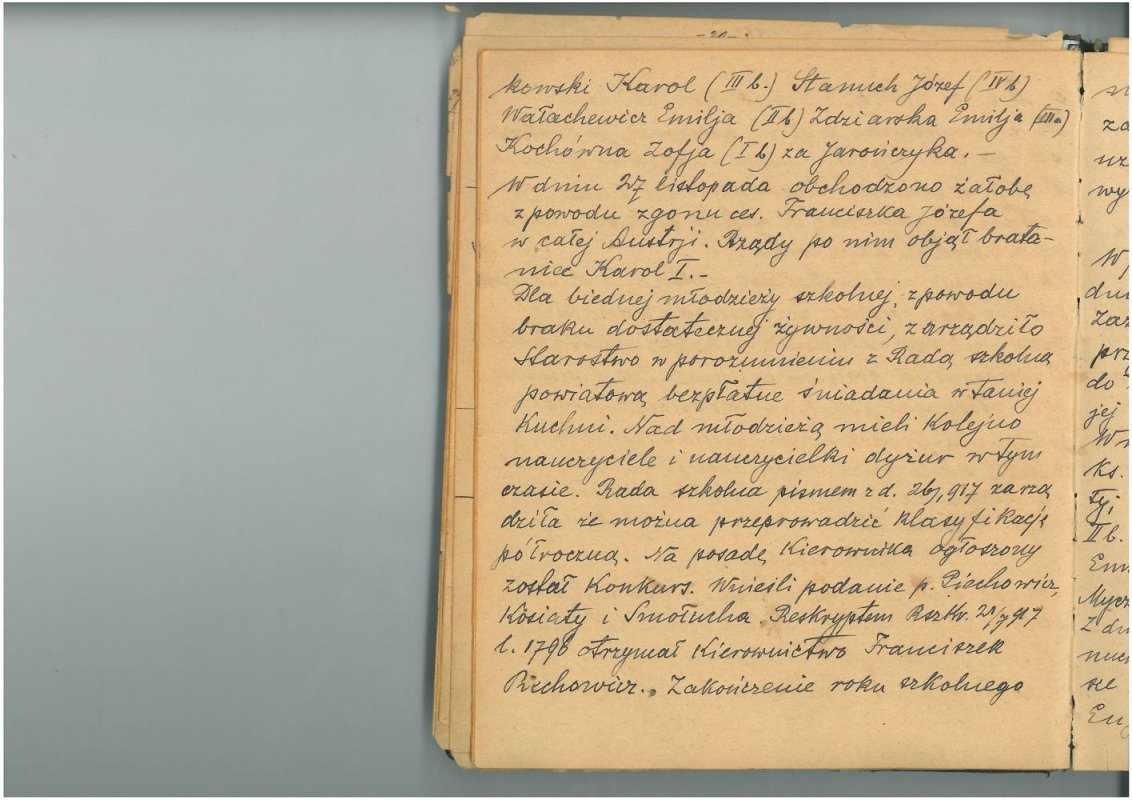 kowski Karol (III b.) Stanuch Józef (IV b)
Wałachewicz Emilja (II b) Zdziarska Emilja (III a)
Kochówna Zofja (I b) za Jarończyka. —
W dniu 27 listopada obchodzono żałobę
z powodu zgonu ces. Franciszka Józefa
w całej Austrji. Rządy po nim objął brata-
nice Karol I. -
Dla biednej młodzieży szkolnej, z powodu
braku dostatecznej żywności, zarządziło
Starostwo w porozumieniu z Radą szkolną
powiatową bezpłatne śniadania w taniej
Kuchni. Nad młodzieżą mieli Kolejno
nauczyciele i nauczycielki dyżur w tym
czasie. Rada szkolna pismem z d. 917 zarzą
dziła że można przeprowadzić klasyfikację
półroczną. Na posadę Kierownika ogłoszony
został Konkurs. Wnieśli podanie p. Piechowicz,
Kosiaty i Smołucha. Reskryptem Rszkr. 917
l. 1798 otrzymał Kierownictwo Franciszek
Piechowicz. Zakończenie roku szkolnego
za
wy
W
Zaz
prz
do
jej
Ks.
II b.
się